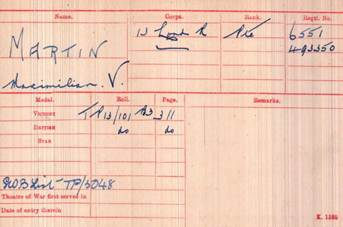 Name. Corps. Rank. Regtl. No.
MARTIN 13 Lond R Pte 6551
Maximilian. V. 493350
Medal. Roll. Page. Remarks.
Victory TP13/101 B3 311
British do do
Star
TP/5048
Theatre of War first served in
Date of entry therein
K. 1380